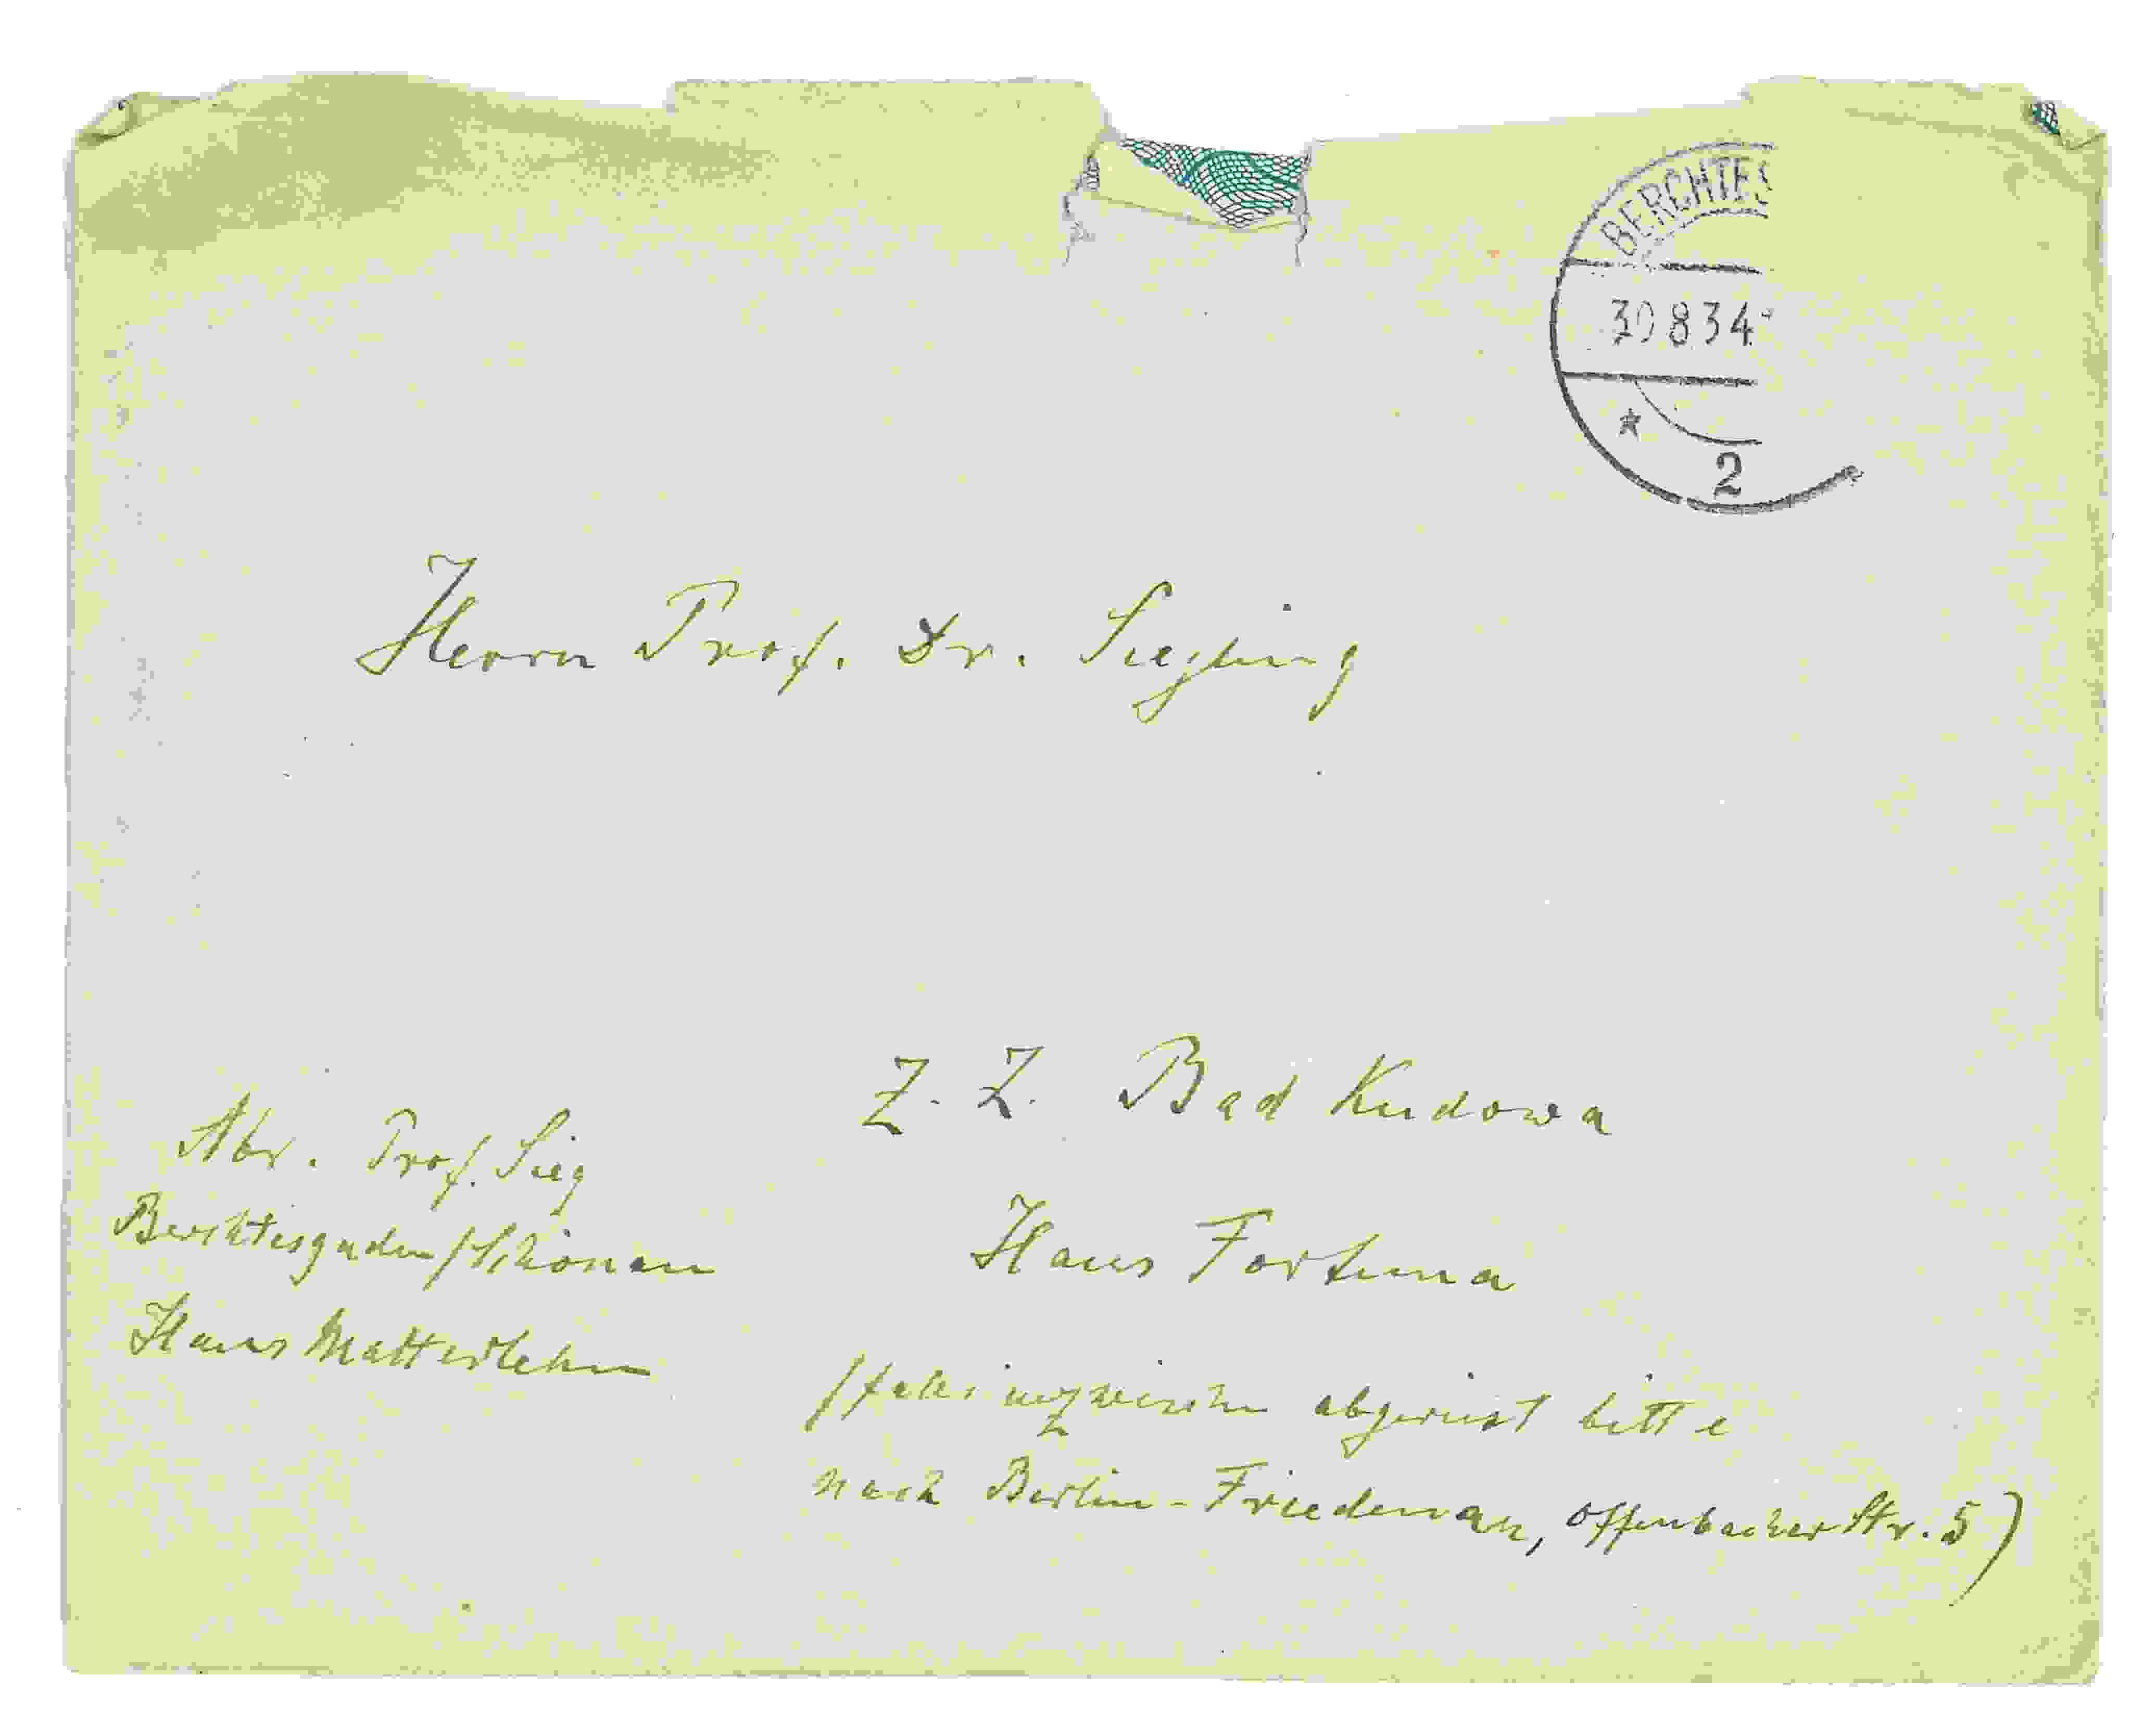 BERCHTES
30.8.34
2
Herrn Prof. Dr. Siegling
Z. Z. Bad Kudowa
Haus Fortuna
(falls inzwischen abgereist bitte
nach Berlin-Friedenau, Offenbacher Str. 5)
Abs. Prof. Sieg
Berchtesgaden/Schönau
Haus Matterlehen